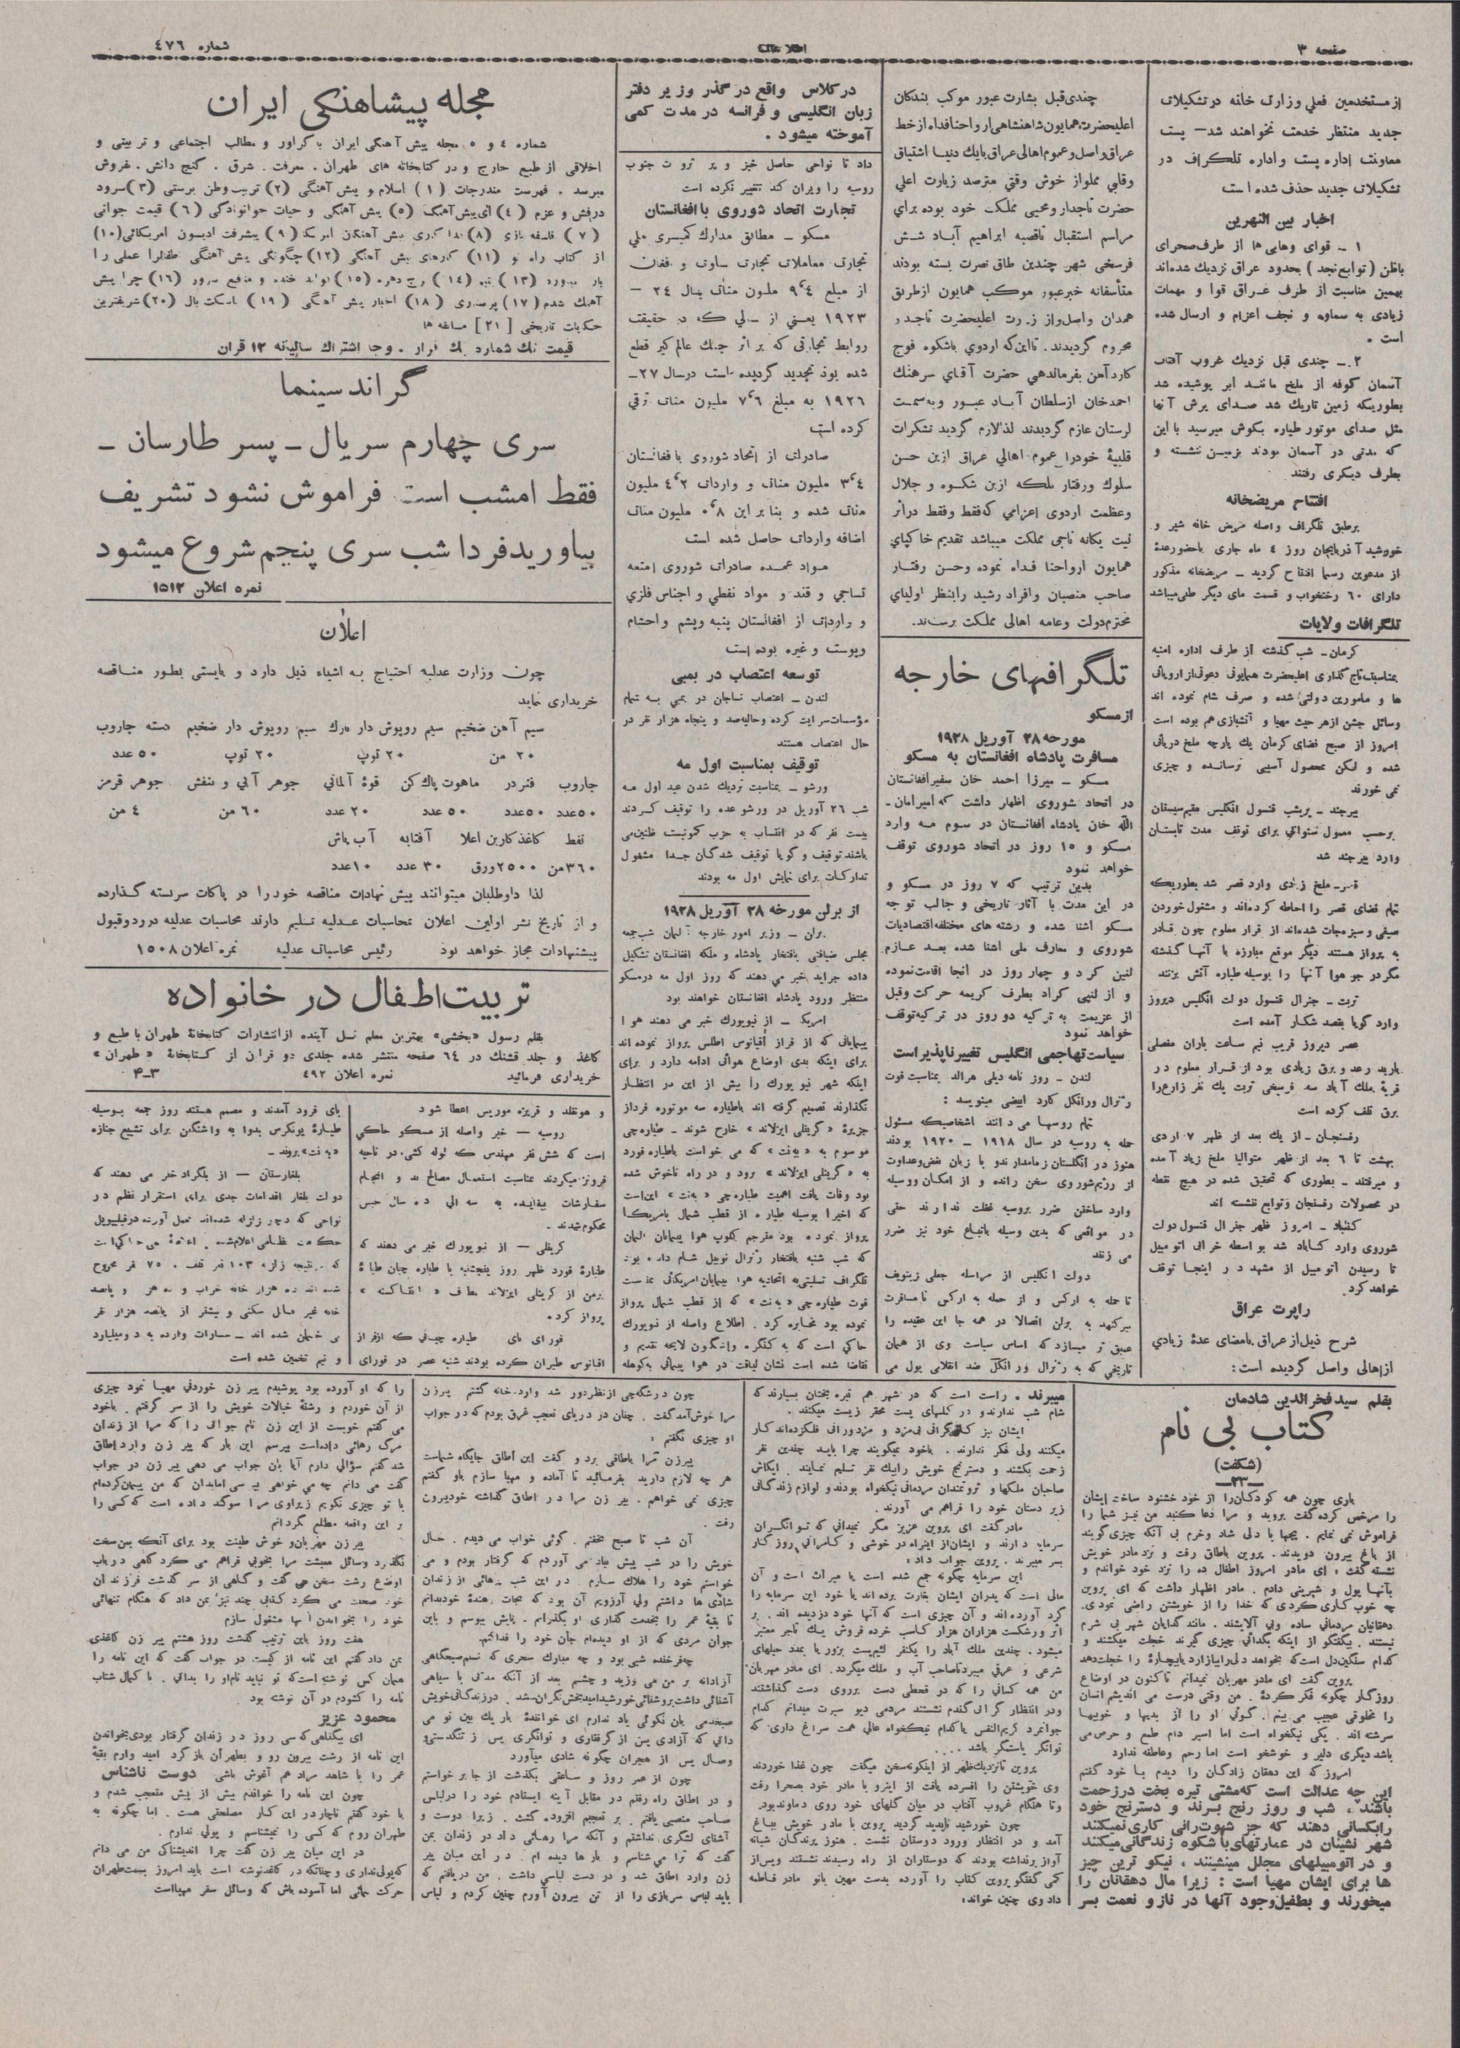 صفحه ۳
اطلاعات
شماره ٤٧٦
از مستخدمین فعلی وزارت خانه در تشکیلات
جدید منتظر خدمت نخواهند شد — پست
معاونت اداره پست و اداره تلگراف در
تشکیلات جدید حذف شده است
اخبار بین النهرین
١ – قوای وهابی ها از طرف صحرای
باطن (توابع نجد) بحدود عراق نزدیک شده‌اند
بهمین مناسبت از طرف عراق قوا و مهمات
زیادی به سماوه و نجف اعزام و ارسال شده
است .
٢ – چندی قبل نزدیک غروب آفتاب
آسمان کوفه از ملخ مانند ابر پوشیده شد
بطوریکه زمین تاریک شد صدای پرش آنها
مثل صدای موتور طیاره بگوش میرسید با این
که مدتی در آسمان بودند بزمین ننشسته و
بطرف دیگری رفتند
افتتاح مریضخانه
برطبق تلگراف واصله مریض خانه شیر و
خورشید آذربایجان روز ٤ ماه جاری باحضور عدهٔ
از مدعوین رسما افتتاح گردید – مریضخانه مذکور
دارای ٦٠ رختخواب و قسمت های دیگر طبی میباشد
تلگرافات ولایات
کرمان – شب گذشته از طرف اداره امنیه
بمناسبت تاج گذاری اعلیحضرت همایونی دعوتی از اروپائی
ها و مامورین دولتی شده و صرف شام نموده اند
وسائل جشن از هر حیث مهیا و آتشبازی هم بوده است
امروز از صبح فضای کرمان یک پارچه ملخ دریائی
شده و لیکن بمحصول آسیبی نرسانده و چیزی
نمی خورند
بیرجند – پریشب قنسول انگلیس مقیم سیستان
برحسب معمول سنواتی برای توقف مدت تابستان
وارد بیرجند شد
قصر – ملخ زیادی وارد قصر شد بطوریکه
تمام فضای قصر را احاطه کرده‌اند و مشغول خوردن
صیفی و سبزیجات شده‌اند از قرار معلوم چون قادر
به پرواز هستند دیگر موقع مبارزه با آنها گذشته
مگر در جو هوا آنها را بوسیله طیاره آتش بزنند
تربت – جنرال قنسول دولت انگلیس دیروز
وارد گویا بقصد شکار آمده است
عصر دیروز قریب نیم ساعت باران مفصلی
بارید رعد و برق زیادی بود از قرار معلوم در
قریهٔ ملک آباد سه فرسخی تربت یک نفر زارع را
برق تلف کرده است
رفسنجان – از یک بعد از ظهر ٧ اردی
بهشت تا ٦ بعد از ظهر متوالیا ملخ زیاد آمده
و میرفتند – بطوری که تحقیق شده در هیچ نقطه
در محصولات رفسنجان و توابع ننشسته اند
گناباد – امروز ظهر جنرال قنسول دولت
شوروی وارد گناباد شد بواسطه خرابی اتومبیل
تا رسیدن آتومبیل از مشهد در اینجا توقف
خواهد کرد.
راپرت عراق
شرح ذیل از عراق بامضای عدهٔ زیادی
از اهالی واصل گردیده است :
چندی قبل بشارت عبور موکب بندگان
اعلیحضرت همایون شاهنشاهی ارواحنا فداه از خط
عراق واصل و عموم اهالی عراق بایک دنیا اشتیاق
وقلبی مملو از خوش وقتی مترصد زیارت اعلی
حضرت تاجدار و محیی مملکت خود بوده برای
مراسم استقبال تا قصبه ابراهیم آباد شش
فرسخی شهر چندین طاق نصرت بسته بودند
متأسفانه خبر عبور موکب همایون از طریق
همدان واصل و از زیارت اعلیحضرت تاجدار
محروم گردیدند. تا این که اردوی باشکوه فوج
کارد آهن بفرماندهی حضرت آقای سرهنگ
احمدخان از سلطان آباد عبور و به سمت
لرستان عازم گردیدند لذا لازم گردید تشکرات
قلبیهٔ خود را عموم اهالی عراق ازین حسن
سلوک و رفتار بلکه ازین شکوه و جلال
وعظمت اردوی اعزامی که فقط وفقط در اثر
نیت یگانه ناجی مملکت میباشد تقدیم خاکپای
همایون ارواحنا فداه نموده وحسن رفتار
صاحب منصبان وافراد رشید را بنظر اولیای
محترم دولت وعامه اهالی مملکت برسانند.
تلگرافهای خارجه
از مسکو
مورخه ٢٨ آوریل ١٩٢٨
مسافرت پادشاه افغانستان به مسکو
مسکو – میرزا احمد خان سفیر افغانستان
در اتحاد شوروی اظهار داشت که امیر امان –
الله خان پادشاه افغانستان در سوم مه وارد
مسکو و ١٥ روز در اتحاد شوروی توقف
خواهد نمود
بدین ترتیب که ٧ روز در مسکو و
در این مدت با آثار تاریخی و جالب توجه
مسکو آشنا شده و رشته های مختلفه اقتصادیات
شوروی و معارف ملی آشنا شده بعد عازم
لنین گراد و چهار روز در آنجا اقامت نموده
و از لنین گراد بطرف کریمه حرکت وقبل
از عزیمت به ترکیه دو روز در ترکیه توقف
خواهد نمود
سیاست تهاجمی انگلیس تغییر ناپذیر است
لندن – روز نامه دیلی هرالد بمناسبت فوت
ژنرال ورانگل کارد ابیضی مینویسد :
تمام روسها می دانند اشخاصیکه مسئول
حمله به روسیه در سال ١٩١٨ – ١٩٢٠ بودند
هنوز در انگلستان زمامدارند و با زبان بغض وعداوت
از رژیم شوروی سخن رانده و از امکان و وسیله
وارد ساختن ضرر بروسیه غفلت ندارند حتی
در مواقعی که بدین وسیله باتباع خود نیز ضرر
می زنند
دولت انگلیس از مراسله جعلی زینویف
تا حمله به ارکس و از حمله به ارکس تا مسافرت
بیرکنهد به برلن اتصالا در همه جا این عقیده را
عمیق تر میسازد که اساس سیاست وی از همان
تاریخی که به ژنرال ورانگل ضد انقلابی پول می
در کلاس واقع در گذر وزیر دفتر
زبان انگلیسی و فرانسه در مدت کمی
آموخته میشود .
داد تا نواحی حاصل خیز و پر ثروت جنوب
روسیه را ویران کند تغییر نکرده است
تجارت اتحاد شوروی با افغانستان
مسکو – مطابق مدارک کمیسری ملی
تجارت معاملات تجارتی ساوت و افغان
از مبلغ ٩٬٤ ملیون منات بسال ٢٤ –
١٩٢٣ یعنی از سالی که در حقیقت
روابط تجارتی که بر اثر جنگ عالم گیر قطع
شده بود تجدید گردیده است در سال ٢٧ –
١٩٢٦ به مبلغ ٧٬٦ ملیون منات ترقی
کرده است
صادرات از اتحاد شوروی با فغانستان
٣٬٤ ملیون منات و واردات ٤٬٢ ملیون
منات شده و بنابر این ٠٬٨ ملیون منات
اضافه واردات حاصل شده است
مواد عمده صادرات شوروی امتعه
نساجی و قند و مواد نفطی و اجناس فلزی
و واردات از افغانستان پنبه وپشم و احشام
وپوست و غیره بوده است
توسعه اعتصاب در بمبی
لندن – اعتصاب نساجان در بمبی به تمام
مؤسسات سرایت کرده و حالیه صد و پنجاه هزار نفر در
حال اعتصاب هستند
توقیف بمناسبت اول مه
ورشو – بمناسبت نزدیک شدن عید اول مه
شب ٢٦ آوریل در ورشو عده را توقیف کردند
بیست نفر که در انتساب به حزب کمونیست ظنین می
باشند توقیف و گویا توقیف شدگان جدا مشغول
تدارکات برای نمایش اول مه بودند
از برلن مورخه ٢٨ آوریل ١٩٢٨
برلن – وزیر امور خارجه آلمان شب جمعه
مجلس ضیافتی بافتخار پادشاه و ملکه افغانستان تشکیل
داده جراید خبر می دهند که روز اول مه در مسکو
منتظر ورود پادشاه افغانستان خواهند بود
امریک – از نیویورک خبر می دهند هوا
پیمایانی که از فراز آقیانوس اطلس پرواز نموده اند
برای اینکه بدی اوضاع هوائی ادامه دارد و برای
اینکه شهر نیویورک را بیش از این در انتظار
نگذارند تصمیم گرفته اند باطیاره سه موتوره فرداز
جزیرهٔ «گرینلی ایزلاند» خارج شوند – طیاره‌چی
موسوم به «به‌نت» که می خواست باطیاره فورد
به «گرینلی ایزلاند» برود و در راه ناخوش شده
بود وفات یافت اهمیت طیاره چی «به‌نت» این است
که اخیرا بوسیله طیاره از قطب شمال بامریکا
پرواز نموده بود
که شب شنبه بافتخار ژنرال نوبیل شام داده بود
تلگراف تسلیتی به اتحادیه هوا پیمایان امریکائی بمناسبت
فوت طیاره چی «به‌نت» که از قطب شمال پرواز
نموده بود مخابره کرد. اطلاع واصله از نیویورک
حاکی است که به کنگره واشنگتون لایحه تقدیم و
تقاضا شده است نشان لیاقت در هوا پیمائی به کوهله
و هونفلد و فریزه موریس اعطا شود
روسیه — خبر واصله از مسکو حاکی
است که شش نفر مهندس که لوله کشی در ناحیه
گروزنی میکردند بمناسبت استعمال مصالح بد و انجام
سفارشات بیفایده به سه الی ده سال حبس
محکوم شدند .
گرینلی — از نیویورک خبر می دهند که
طیارهٔ فورد ظهر روز پنجشنبه با طیاره چیان طیارهٔ
برمن از گرینلی ایزلاند بطرف
پرواز کرد .
فورای بای طیاره چیانی که از فراز
اقیانوس طیران کرده بودند شنبه عصر در فورای
بای فرود آمدند و مصمم هستند روز جمعه بوسیله
طیارهٔ یونکرس بدوا به واشنگتن برای تشییع جنازه
«به نت» بروند –
بلغارستان — از بلگراد خبر می دهند که
دولت بلغار اقدامات جدی برای استقرار نظم در
نواحی که دچار زلزله شده‌اند بعمل آورده در فیلیپوپل
حکومت نظامی اعلام شده.
که در نتیجه زلزله ١٠٣ نفر تلف . ٧٥ نفر مجروح
شده‌اند
خانه غیر قابل سکنی و بیشتر از پانصد هزار نفر
بی خانمان شده اند – خسارات وارده به دو میلیارد
و نیم تخمین شده است
مجله پیشاهنگی ایران
شماره ٤ و ٥ مجله پیش آهنگی ایران با گراور و مطالب اجتماعی و تربیتی و
اخلاقی از طبع خارج و در کتابخانه های طهران . معرفت . شرق . گنج دانش . فروش
میرسد . فهرست مندرجات (١) اسلام و پیش آهنگی (٢) تربیت وطن پرستی (٣) سرود
درفش و عزم (٤) ای پیش آهنگ (٥) پیش آهنگی و حیات خوانوادگی (٦) قیمت جوانی
(٧) فلسفه بازی (٨) فداکاری پیش آهنگان امریکا (٩) پیشرفت ادیسون امریکائی (١٠)
از کتاب راه نو (١١) کارهای پیش آهنگی (١٢) چگونگی پیش آهنگی اطفال را عملی را
(١٥) تولید خنده و منافع سرور (١٦) چرا پیش
آهنگ شدم (١٧) پرستاری (١٨) اخبار پیش آهنگی (١٩) باسکت بال (٢٠) شریفترین
حکایات تاریخی [٢١] مسابقه ها
قیمت تک شماره یک قران . وجه اشتراک سالیانه ١٢ قران
گراند سینما
سری چهارم سریال – پسر طارسان –
فقط امشب است. فراموش نشود تشریف
بیاورید فردا شب سری پنجم شروع میشود
نمره اعلان ١٥١٢
اعلان
چون وزارت عدلیه احتیاج به اشیاء ذیل دارد و بایستی بطور مناقصه
خریداری نماید
سیم آهن ضخیم سیم روپوش دار نازک سیم روپوش دار ضخیم دسته جاروب
٢٠ من ٢٠ توپ ٢٠ توپ ٥٠ عدد
جاروب فنر در ماهوت پاک کن قوهٔ آلمانی جوهر آبی و بنفش جوهر قرمز
٥٠ عدد ٥٠ عدد ٥٠ عدد ٢٠ عدد ٦٠ من ٤ من
نفط کاغذ کاربن اعلا آفتابه آب پاش
٣٦٠ من ٢٥٠٠ ورق ٣٠ عدد ١٠ عدد
لذا داوطلبان میتوانند پیش نهادات مناقصه خود را در پاکات سربسته گذارده
و از تاریخ نشر اولین اعلان بمحاسبات عدلیه تسلیم دارند محاسبات عدلیه در رد وقبول
پیشنهادات مجاز خواهد بود رئیس محاسبات عدلیه نمره اعلان ١٥٠٨
تربیت اطفال در خانواده
بقلم رسول «بخشی» بهترین معلم نسل آینده از انتشارات کتابخانهٔ طهران با طبع و
کاغذ و جلد قشنگ در ٦٤ صفحه منتشر شده جلدی دو قران از کتابخانهٔ «طهران»
خریداری فرمائید نمره اعلان ٤٩٢ ٣–٤
بقلم سید فخرالدین شادمان
کتاب بی نام
(شگفت)
—٢٣—
باری چون همه کودکان را از خود خشنود ساخت ایشان
را مرخص کرده گفت بروید و مرا دعا کنید من نیز شما را
فراموش نمی نمایم . بچها با دلی شاد وخرم بی آنکه چیزی گویند
از باغ بیرون دویدند. پروین باطاق رفت و نزد مادر خویش
نشسته گفت : ای مادر امروز اطفال ده را نزد خود خواندم و
بآنها پول و شیرینی دادم . مادر اظهار داشت که ای پروین
چه خوب کاری کردی که خدا را از خویشتن راضی نمودی.
دهقانیان مردمانی ساده وبی آلایشند . مانند گدایان شهر بی شرم
نیستند . بیگفتگو از اینکه بگدائی چیزی گیرند خجلت میکشند و
کدام سنگین دل است که بخواهد دلی را بیازارد یا بیچارهٔ را خجلت دهد
پروین گفت ای مادر مهربان نمیدانم تاکنون در اوضاع
روزگار چگونه فکر کردهٔ . من وقتی درست می اندیشم انسان
را مخلوقی عجیب می بینم. گوئی او را از بدیها و خوبیها
سرشته اند . یکی نیکخواه است اما اسیر دام طمع و حرص می
باشد دیگری دلیر و خوشخو است اما رحم وعاطفه ندارد
امروز که این دهقان زادگان را دیدم با خود گفتم
این چه عدالت است که مشتی تیره بخت در زحمت
باشند ، شب و روز رنج برند و دسترنج خود
رابکسانی دهند که جز شهوت رانی کاری نمیکنند
شهر نشینان در عمارتهای با شکوه زندگانی میکنند
و در اتومبیلهای مجلل مینشینند ، نیکو ترین چیز
ها برای ایشان مهیا است : زیرا مال دهقانان را
میخورند و بطفیل وجود آنها در ناز و نعمت بسر
میبرند . راست است که در شهر هم تیره بختان بسیارند که
شام شب ندارند و در کلبهای پست محقر زیست میکنند .
ایشان نیز کارگرانی بی مزد و مزدورانی فلکزده‌اند کار
میکنند ولی فکر ندارند . باخود نمیگویند چرا باید چندین نفر
زحمت بکشند و دسترنج خویش را بیک نفر تسلیم نمایند . ایکاش
صاحبان ملکها و ثروتمندان مردمانی نیکخواه بودند و لوازم زندگانی
زیر دستان خود را فراهم می آوردند .
مادر گفت ای پروین عزیز مگر نمیدانی که توانگران
سرمایه دارند و ایشان از اینراه در خوشی و کامرانی روزگار
بسر میبرند . پروین جواب داد :
این سرمایه چگونه جمع شده است یا میراث است و آن
مالی است که پدران ایشان بغارت برده اند یا خود این سرمایه را
گرد آورده‌اند و آن چیزی است که آنها خود دزدیده اند . بر
اثر ورشکست هزاران هزار کاسب خرده فروش یک تاجر معتبر
میشود . چندین ملک آباد را یکنفر لئیم پست بزور یا بمدد حیلهای
شرعی و عرفی میبرد تاصاحب آب و ملک میگردد. ای مادر مهربان
من همه کسانی را که در قحطی دست برروی دست گذاشتند
ودر انتظار گرانی گندم نشستند مردمی دیو سیرت میدانم کدام
جوانمرد کریم‌النفس یا کدام نیکخواه عالی همت سراغ داری که
توانگر یا ستمگر باشد ....
پروین تا نزدیک ظهر از اینگونه سخن میگفت چون غذا خوردند
وی خویشتن را افسرده یافت از اینرو با مادر خود بصحرا رفت
وتا هنگام غروب آفتاب در میان گلهای خود روی دماوند بود.
چون خورشید ناپدید گردید پروین با مادر خویش بباغ
آمد و در انتظار ورود دوستان نشست . هنوز پرندگان شبانه
آواز برنداشته بودند که دوستاران از راه رسیدند نشستند و پس از
کمی گفتگو پروین کتاب را آورده بدست مهین بانو مادر فاطمه
داد وی چنین خواند :
چون درشگه‌چی از نظر دور شد وارد خانه گشتم پیرزن
مرا خوش آمد گفت . چنان در دریای تعجب غرق بودم که در جواب
او چیزی نگفتم :
پیرزن مرا باطاقی برد و گفت این اطاق جایگاه شماست
هر چه لازم دارید بفرمائید تا آماده و مهیا سازم باو گفتم
چیزی نمی خواهم . پیر زن مرا در اطاق گذاشته خود بیرون
رفت .
آن شب تا صبح نخفتم . گوئی خواب می دیدم . حال
خویش را در شب پیش بیاد می آوردم که گرفتار بودم و می
خواستم خود را هلاک سازم . در این شب رهائی از زندان
شادی‌ها داشتم ولی آرزویم آن بود که نجات دهندهٔ خود بدانم
تا بقیهٔ عمر را بخدمت گذاری او بگذرانم . پایش ببوسم و باین
جوان مردی که از او دیده‌ام جان خود را فدا کنم.
چه فرخنده شبی بود و چه مبارک سحری که نسیم صبحگاهی
آزادانه بر من می وزید و چشمم بعد از آنکه مدتی با سیاهی
آشنائی داشت بروشنائی خورشید امیدبخش نگران شد . در زندگانی خویش
صبحدمی باین نکوئی یاد ندارم ای خوانندهٔ باریک بین تو می
دانی که آزادی پس از گرفتاری و توانگری پس از تنگدستی و
وصال پس از هجران چگونه شادی میآورد
چون از عمر روز و ساعتی بگذشت از جا بر خواستم
و در اطاق راه رفتم در مقابل آینه ایستادم خود را در لباس
صاحب منصبی یافتم . بر تعجبم افزوده گشت . زیرا دوست و
آشنای لشگری نداشتم و آنکه مرا رهائی داد در زندان بمن
گفت که ترا می شناسم و بارها دیده ام . در این میان پیر
زن وارد اطاق شد و در دست لباسی داشت . من دریافتم که
باید لباس سربازی را از تن بیرون آورم چنین کردم و لباس
را که او آورده بود پوشیدم پیر زن خوردنی مهیا نمود چیزی
از آن خوردم و رشتهٔ خیالات خویش را از سر گرفتم . باخود
می گفتم خوبست از این زن نام جوانی را که مرا از زندان
مرگ رهائی داداست بپرسم این بار که پیر زن وارد اطاق
شد گفتم سؤالی دارم آیا بآن جواب می دهی پیر زن در جواب
گفت می دانم چه می خواهی بپرسی اما بدان که من پیمان کرده‌ام
با تو چیزی نگویم زیراوی مرا سوگند داده است که کسی را
بر این واقعه مطلع گردانم
پیر زن مهربان و خوش طینت بود برای آنکه بمن سخت
نگذرد وسائل معیشت مرا بخوبی فراهم می کرد گاهی در باب
اوضاع رشت سخن می گفت و گاهی از سر گذشت فرزندان
خود صحبت می کرد کتابی چند نیز بمن داد که هنگام تنهائی
خود را بخواندن آنها مشغول سازم
هفت روز باین ترتیب گذشت روز هشتم پیر زن کاغذی
بمن داد گفتم این نامه از کیست در جواب گفت که این نامه را
همان کس نوشته است که تو نباید نام او را بدانی . با کمال شتاب
نامه را گشودم در آن نوشته بود
محمود عزیز
ای بیگناهی که سی روز در زندان گرفتار بودی بخواندن
این نامه از رشت بیرون رو و بطهران باز گرد امید وارم بقیهٔ
عمر را با شاهد مراد هم آغوش باشی دوست ناشناس
چون این نامه را خواندم بیش از پیش متعجب شدم و
با خود گفتم ناچار در این کار مصلحتی هست . اما چگونه به
طهران روم که کسی را نمیشناسم و پولی ندارم .
در این میان پیر زن گفت چرا اندیشناکی من می دانم
که پولی نداری و چنانکه در کاغذ نوشته است باید امروز بسمت طهران
حرکت نمائی اما آسوده باش که وسائل سفر مهیا است